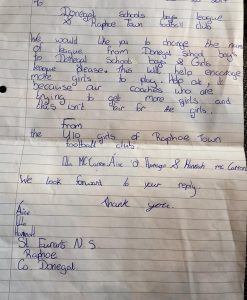 To
Donegal schools boys league
& Raphoe Town football clubs
We would like you to change the name
of league from Donegal school boys
to Donegal school boys & Girls
league please. This will help encourage
more girls to play. Help ask it
because our coaches who are
trying to get more girls and
this isn't fair for the girls.
From
the U10 girls of Raphoe Town
football club.
Mc Carron, Áine & Hannah mc Carron
We look forward to your reply.
Thank you.
Áine
Hannah
St. Eunan's N.S
Raphoe
Co. Donegal